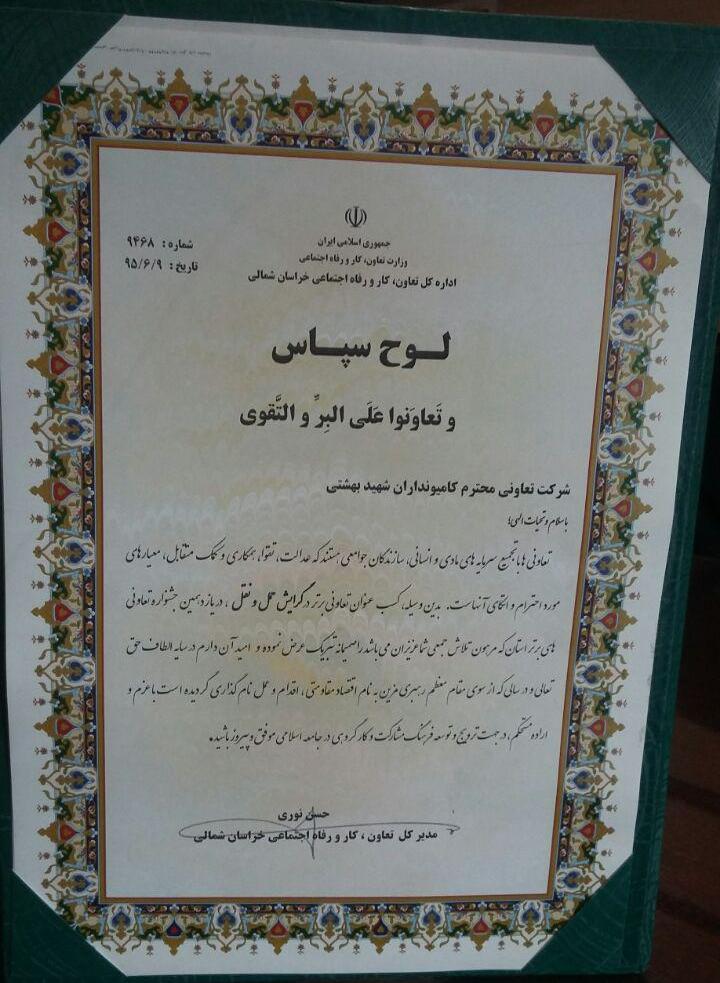 جمهوری اسلامی ایران
وزارت تعاون، کار و رفاه اجتماعی
اداره کل تعاون، کار و رفاه اجتماعی خراسان شمالی
شماره : ۹۴۶۸
تاریخ : ۹۵/۶/۹
لوح سپاس
و تَعاوَنوا عَلَی البِرِّ و التَّقوی
شرکت تعاونی محترم کامیونداران شهید بهشتی
باسلام و تحیات الهی؛
تعاونی ها با تجمیع سرمایه های مادی و انسانی، سازندگان جوامعی هستند که عدالت، تقوا، همکاری و کمک متقابل، معیارهای
مورد احترام و اتکای آنهاست. بدین وسیله، کسب عنوان تعاونی برتر در گرایش حمل و نقل ، در یازدهمین جشنواره تعاونی
های برتر استان که مرهون تلاش جمعی شما عزیزان می باشد را صمیمانه تبریک عرض نموده و امید آن دارم در سایه الطاف حق
تعالی و در سالی که از سوی مقام معظم رهبری مزین به نام اقتصاد مقاومتی، اقدام و عمل نام گذاری گردیده است با عزم و
اراده مستحکم، در جهت ترویج و توسعه فرهنگ مشارکت و کار گروهی در جامعه اسلامی موفق و پیروز باشید.
حسن نوری
مدیر کل تعاون ، کار و رفاه اجتماعی خراسان شمالی